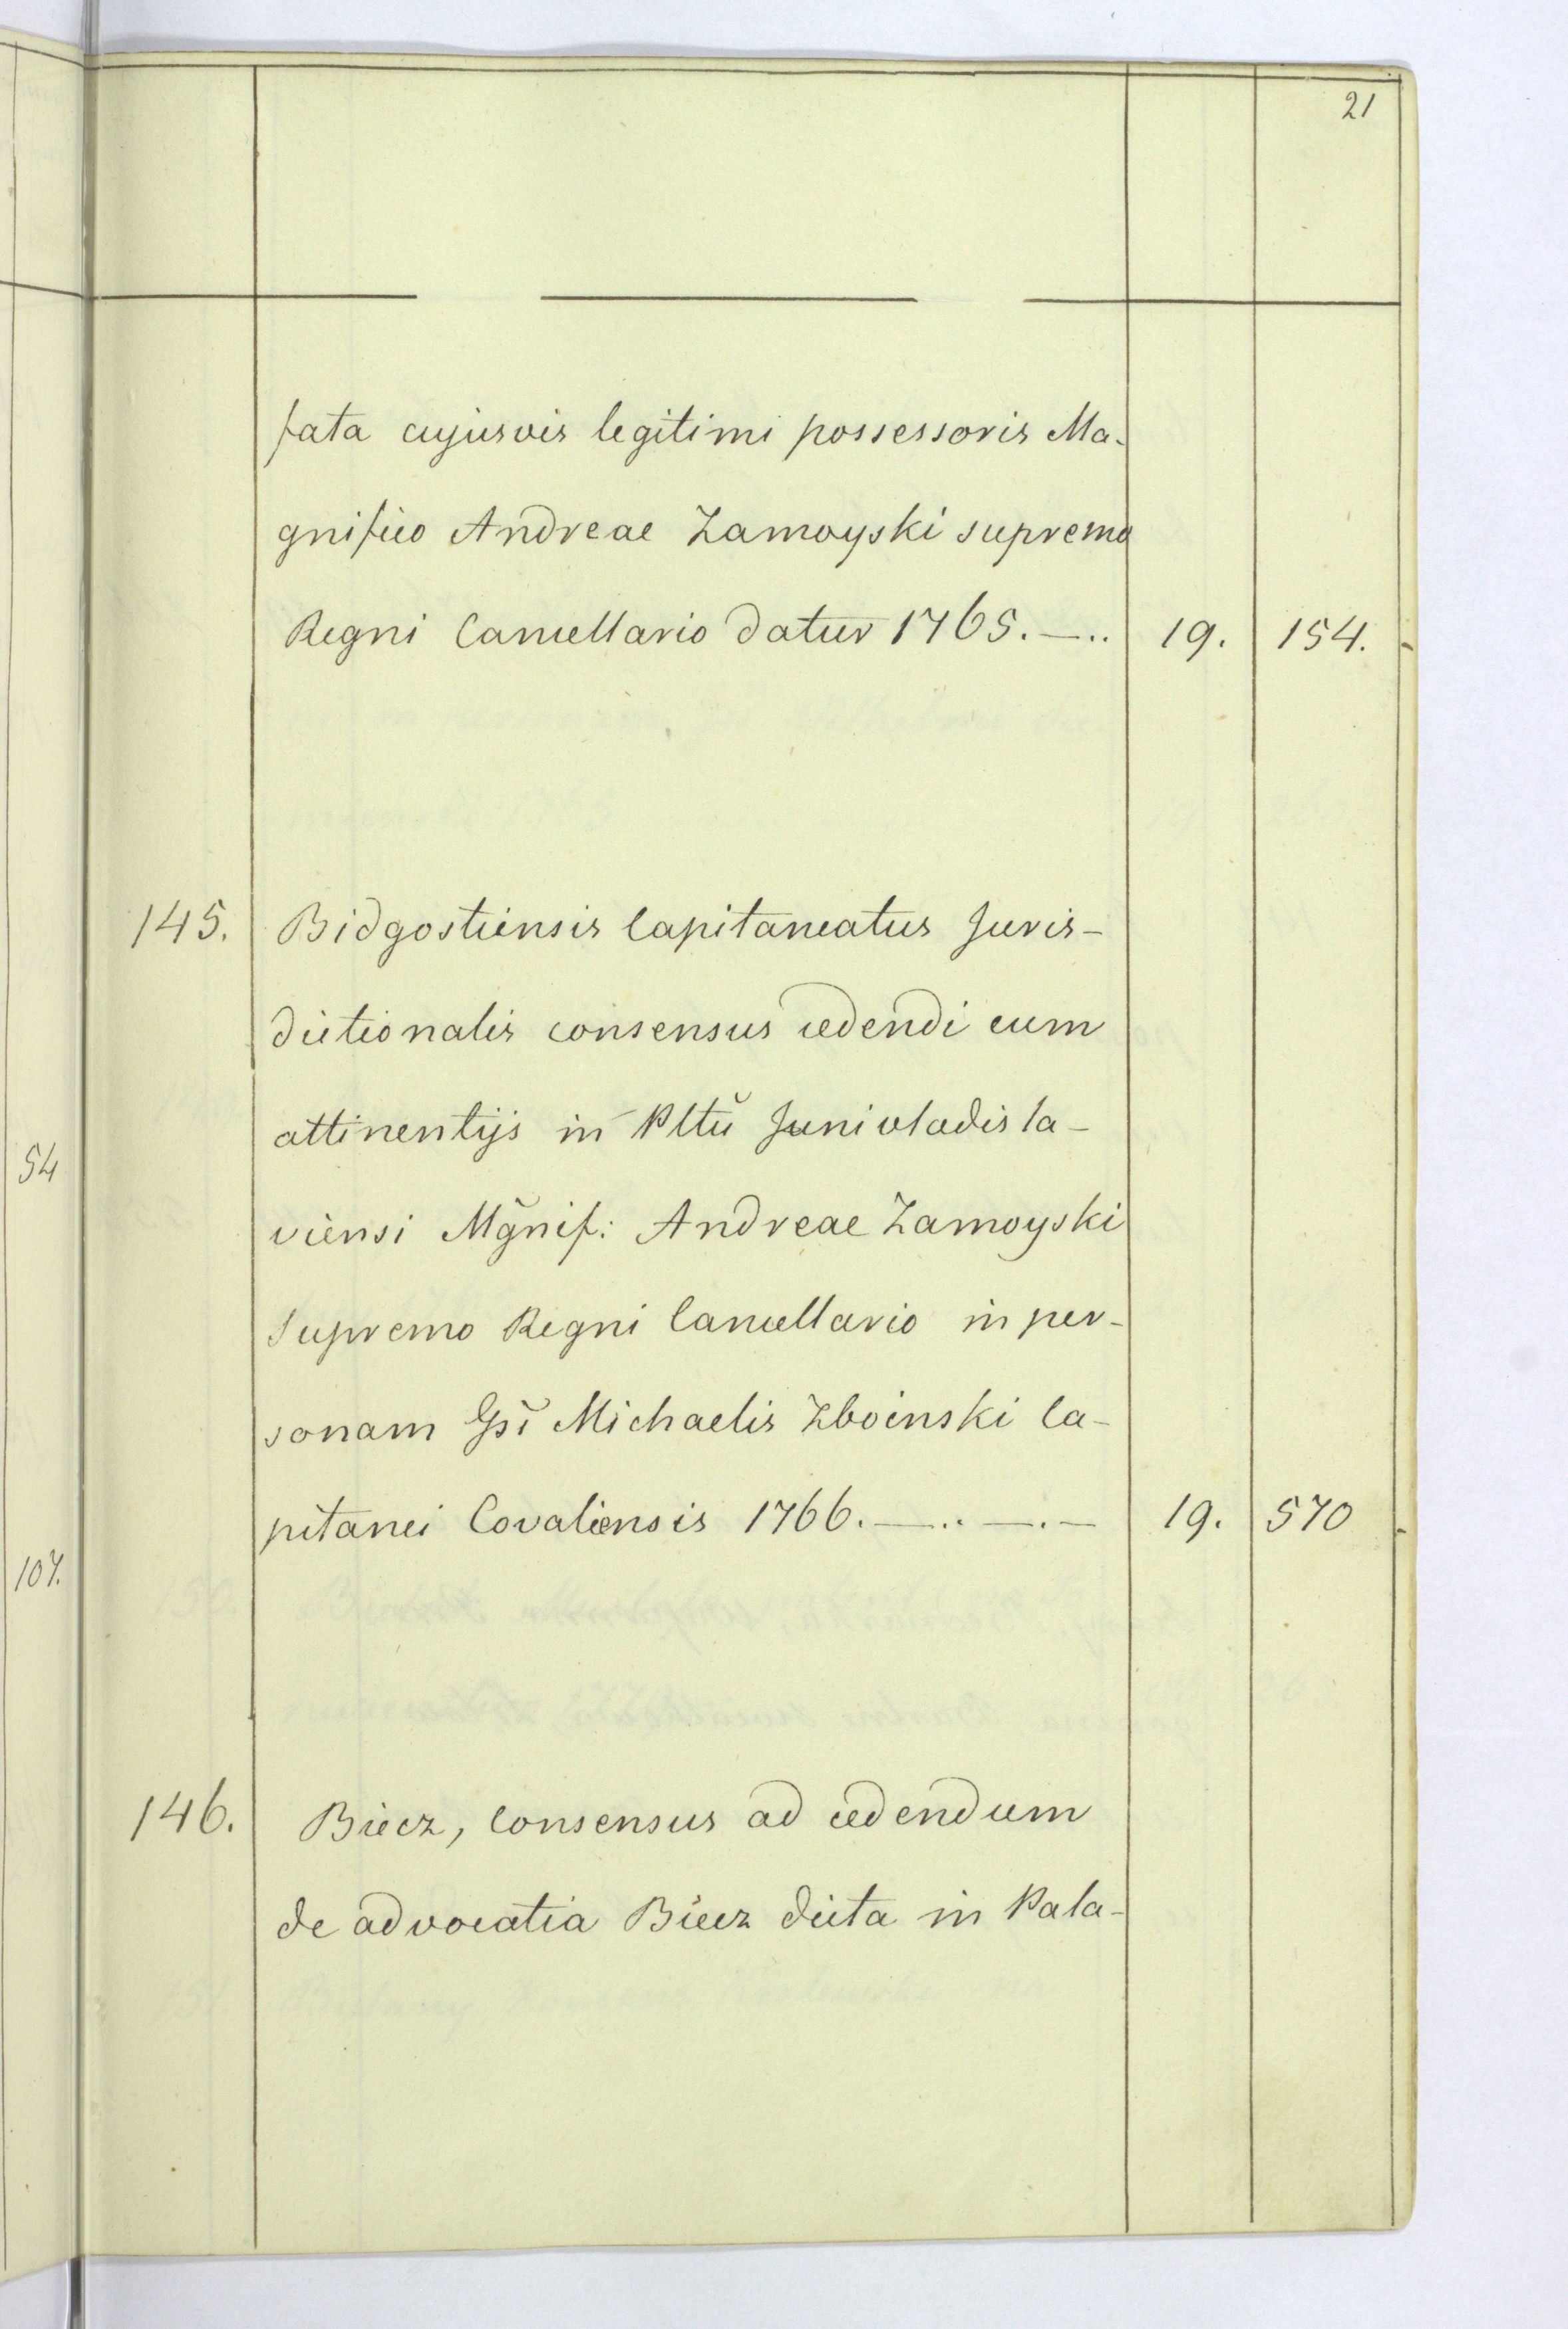 21
fata cujusvis legitimi possessoris Ma-
gnifico Andreae Zamoyski supremo
Regni Cancellario datur 1765. —.. 19. 154.
145. Bidgostiensis Capitaneatus Juris-
dictionalis consensus cedendi cum
attinentijs in Pltū Junivladisla-
viensi Mgnif: Andreae Zamoyski
Supremo Regni Cancellario in per-
sonam Gsi Michaelis Zboinski Ca-
pitanei Covaliensis 1766. —.. —. — 19. 570
146. Biecz, Consensus ad cedendum
de advocatia Biecz dicta in Pala-
54
107.